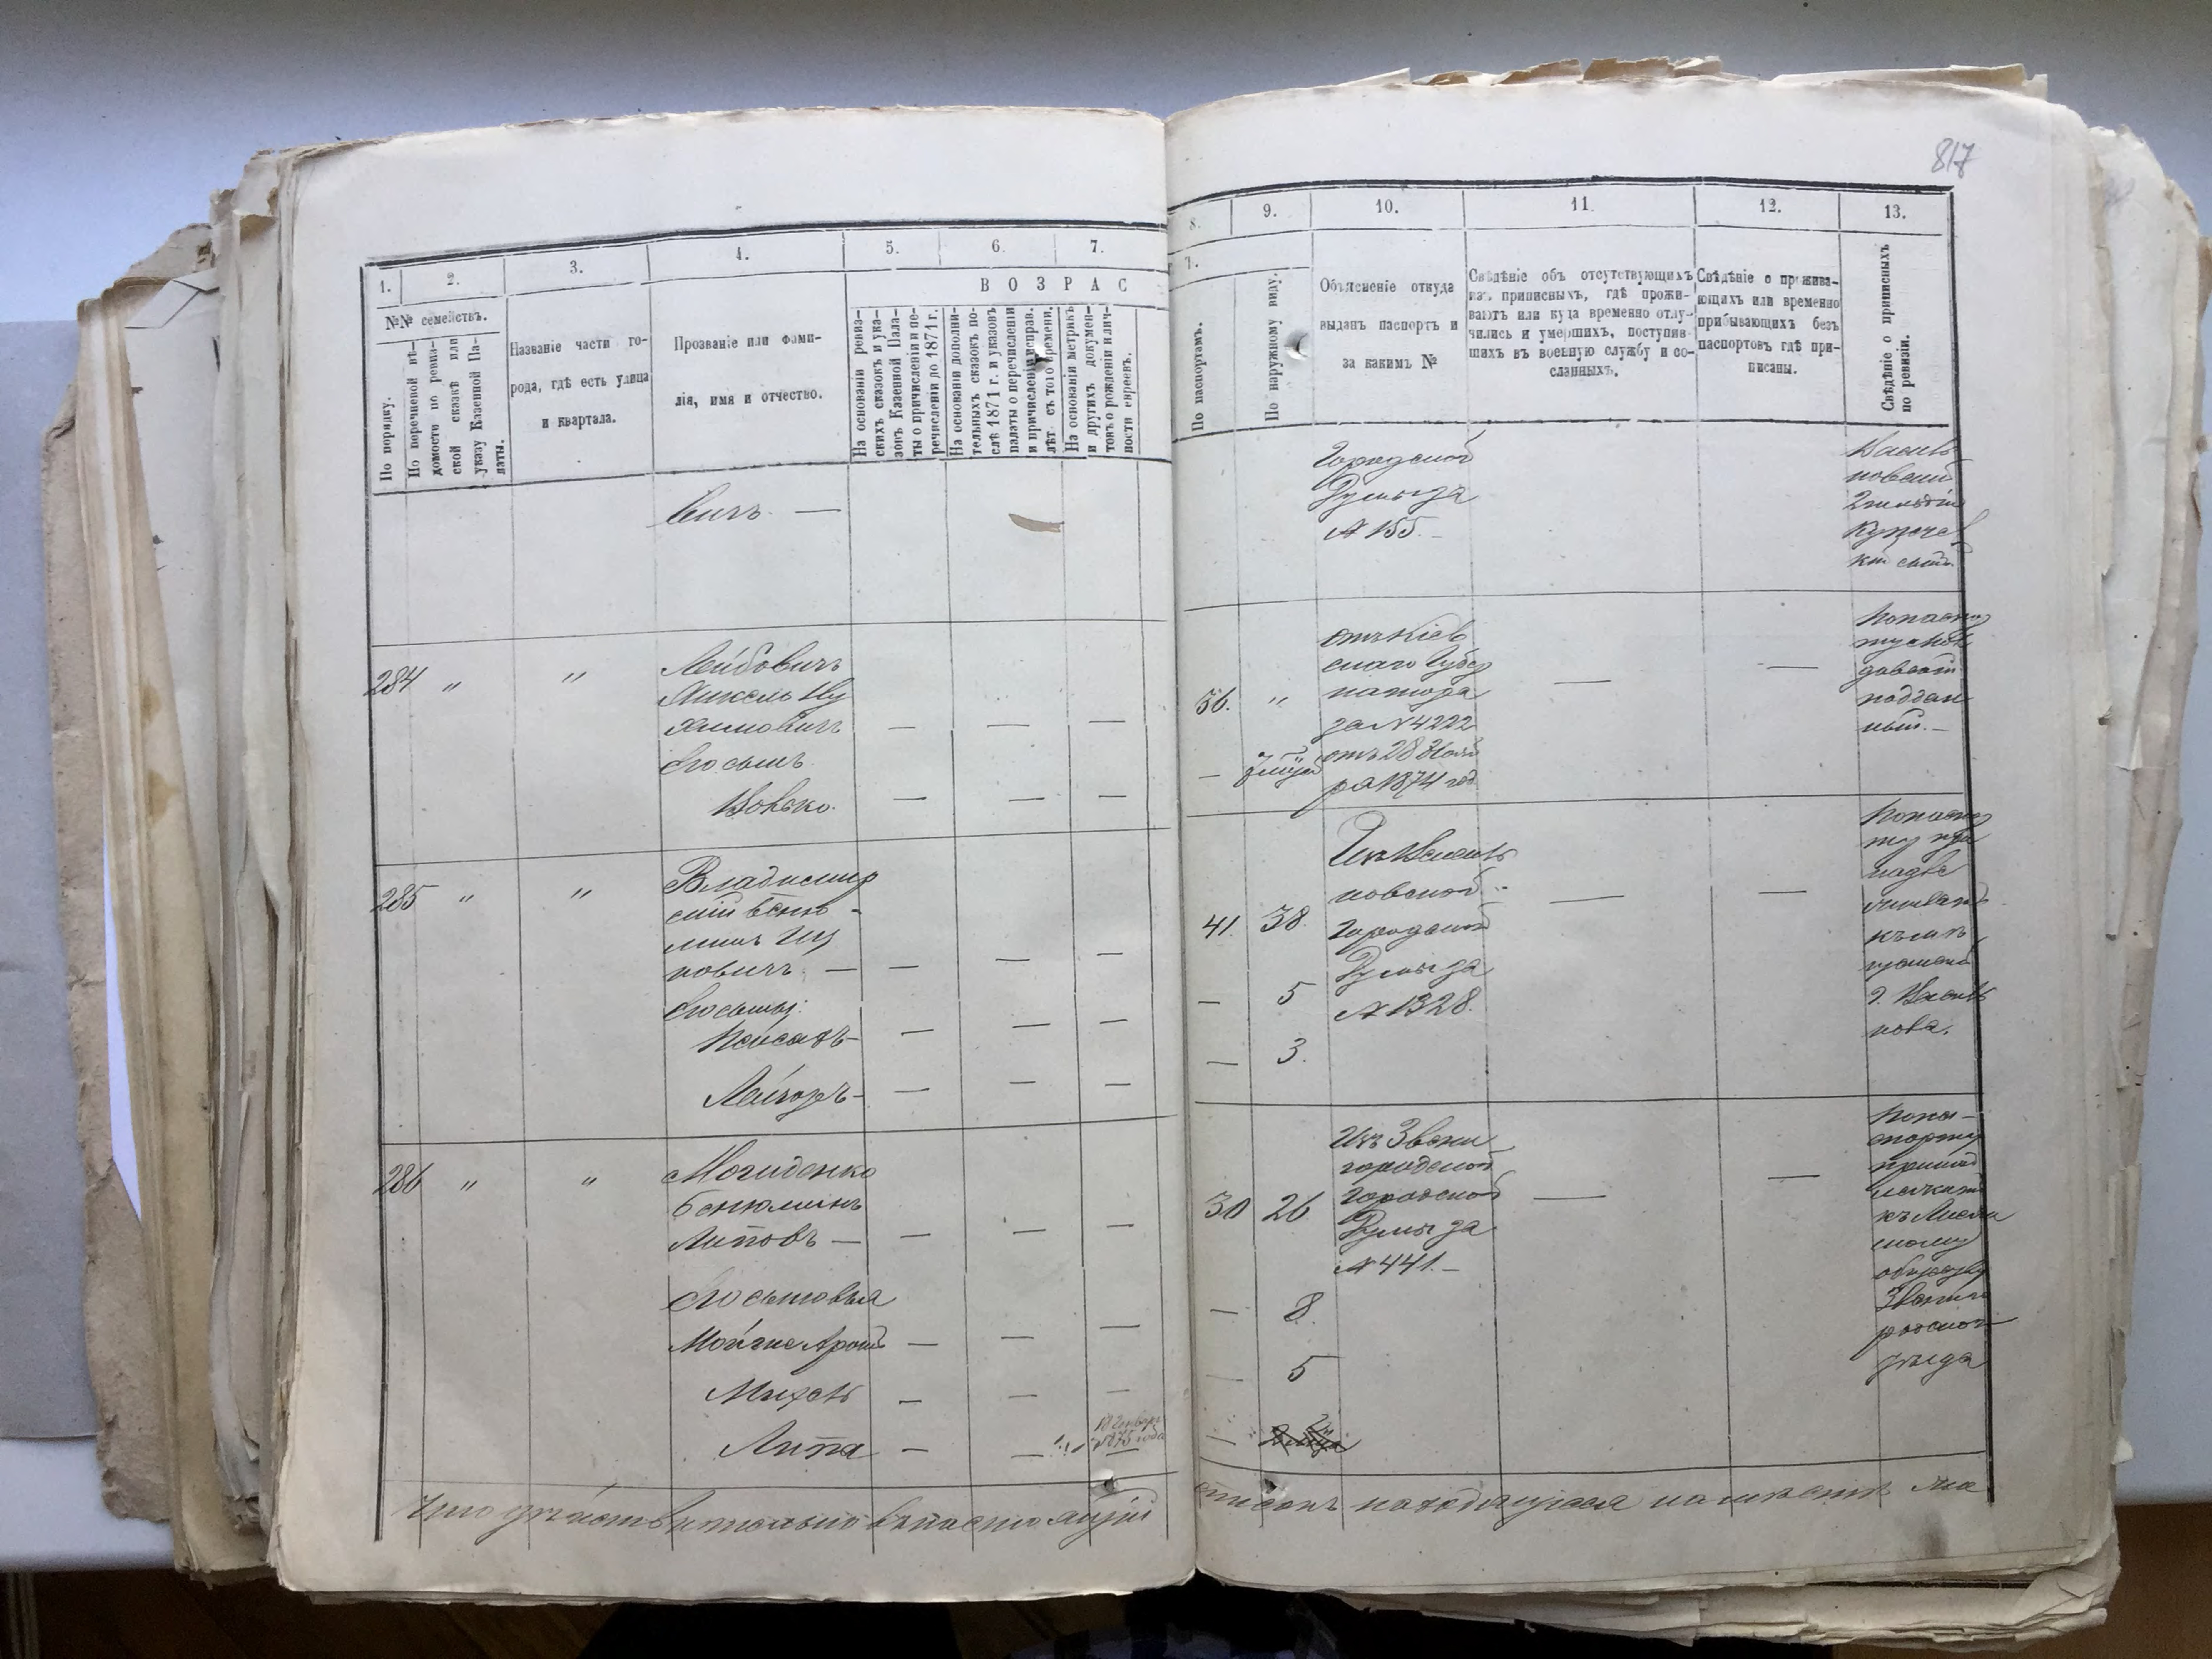 817
1.
2.
3.
4.
5.
6.
7.
8.
9.
10.
11
12.
13.
№№ семействъ.
В О З Р А С
По порядку.
По перечневой вѣ-
домости по ревиз-
ской сказкѣ или
указу Казенной Па-
латы.
Названіе части го-
рода, гдѣ есть улица
и квартала.
Прозваніе или фами-
лія, имя и отчество.
На основаніи ревиз-
скихъ сказокъ и ука-
зовъ Казенной Пала-
ты о причисленіи и пе-
речисленіи до 1871 г.
На основаніи дополни-
тельныхъ сказокъ по-
слѣ 1871 г. и указовъ
палаты о перечисленіи
и причисленіи исправ.
лѣт. съ того времени.
На основаніи метрикъ
и другихъ докумен-
товъ о рожденіи и лич-
ности евреевъ.
Т.
По паспортамъ.
По наружному виду.
Объясненіе откуда
выданъ паспортъ и
за какимъ №
Свѣдѣніе объ отсутствующихъ
изъ приписныхъ, гдѣ прожи-
ваютъ или куда временно отлу-
чились и умершихъ, поступив-
шихъ въ военную службу и со-
сланныхъ.
Свѣдѣніе о прожива-
ющихъ или временно
прибывающихъ безъ
паспортовъ гдѣ при-
писаны.
Свѣдѣніе о приписныхъ
по ревизіи.
вичъ. —
Городской
Думы за
№ 155. –
Василь
ковскій
2 гильдіи
Купече
284 " "
Лейбовичъ
Его сынъ
Вовько.
56. "
отъ Кіев
скаго Губер
натора
за № 4222
отъ 28
ря 1874 год
Попаспор
поддан
ный. –
285 " "
Владимир
скій Беню
минъ
новичъ. —
Его сыны:
Пейсахъ –
Лейзоръ –
41. 38.
5
3.
Изъ Василь
ковской
Городской
Думы за
№ 1328.
Попаспор
ту
къ
г. Василь
кова.
286 " "
Могиденко
Бенюминъ
Липовъ —
Его сыновья
Мойше Аронъ
Михель
Липа
1875 года
30 26
8.
5
Изъ Звени
городской
Городской
Думы за
№ 441. –
Попас–
порту
принад
лежитъ
къ Лисян
скому
обществу
Звениго
родского
уѣзда
Что дѣйствительно въ настоящій
списокъ находящіеся на мѣстѣ